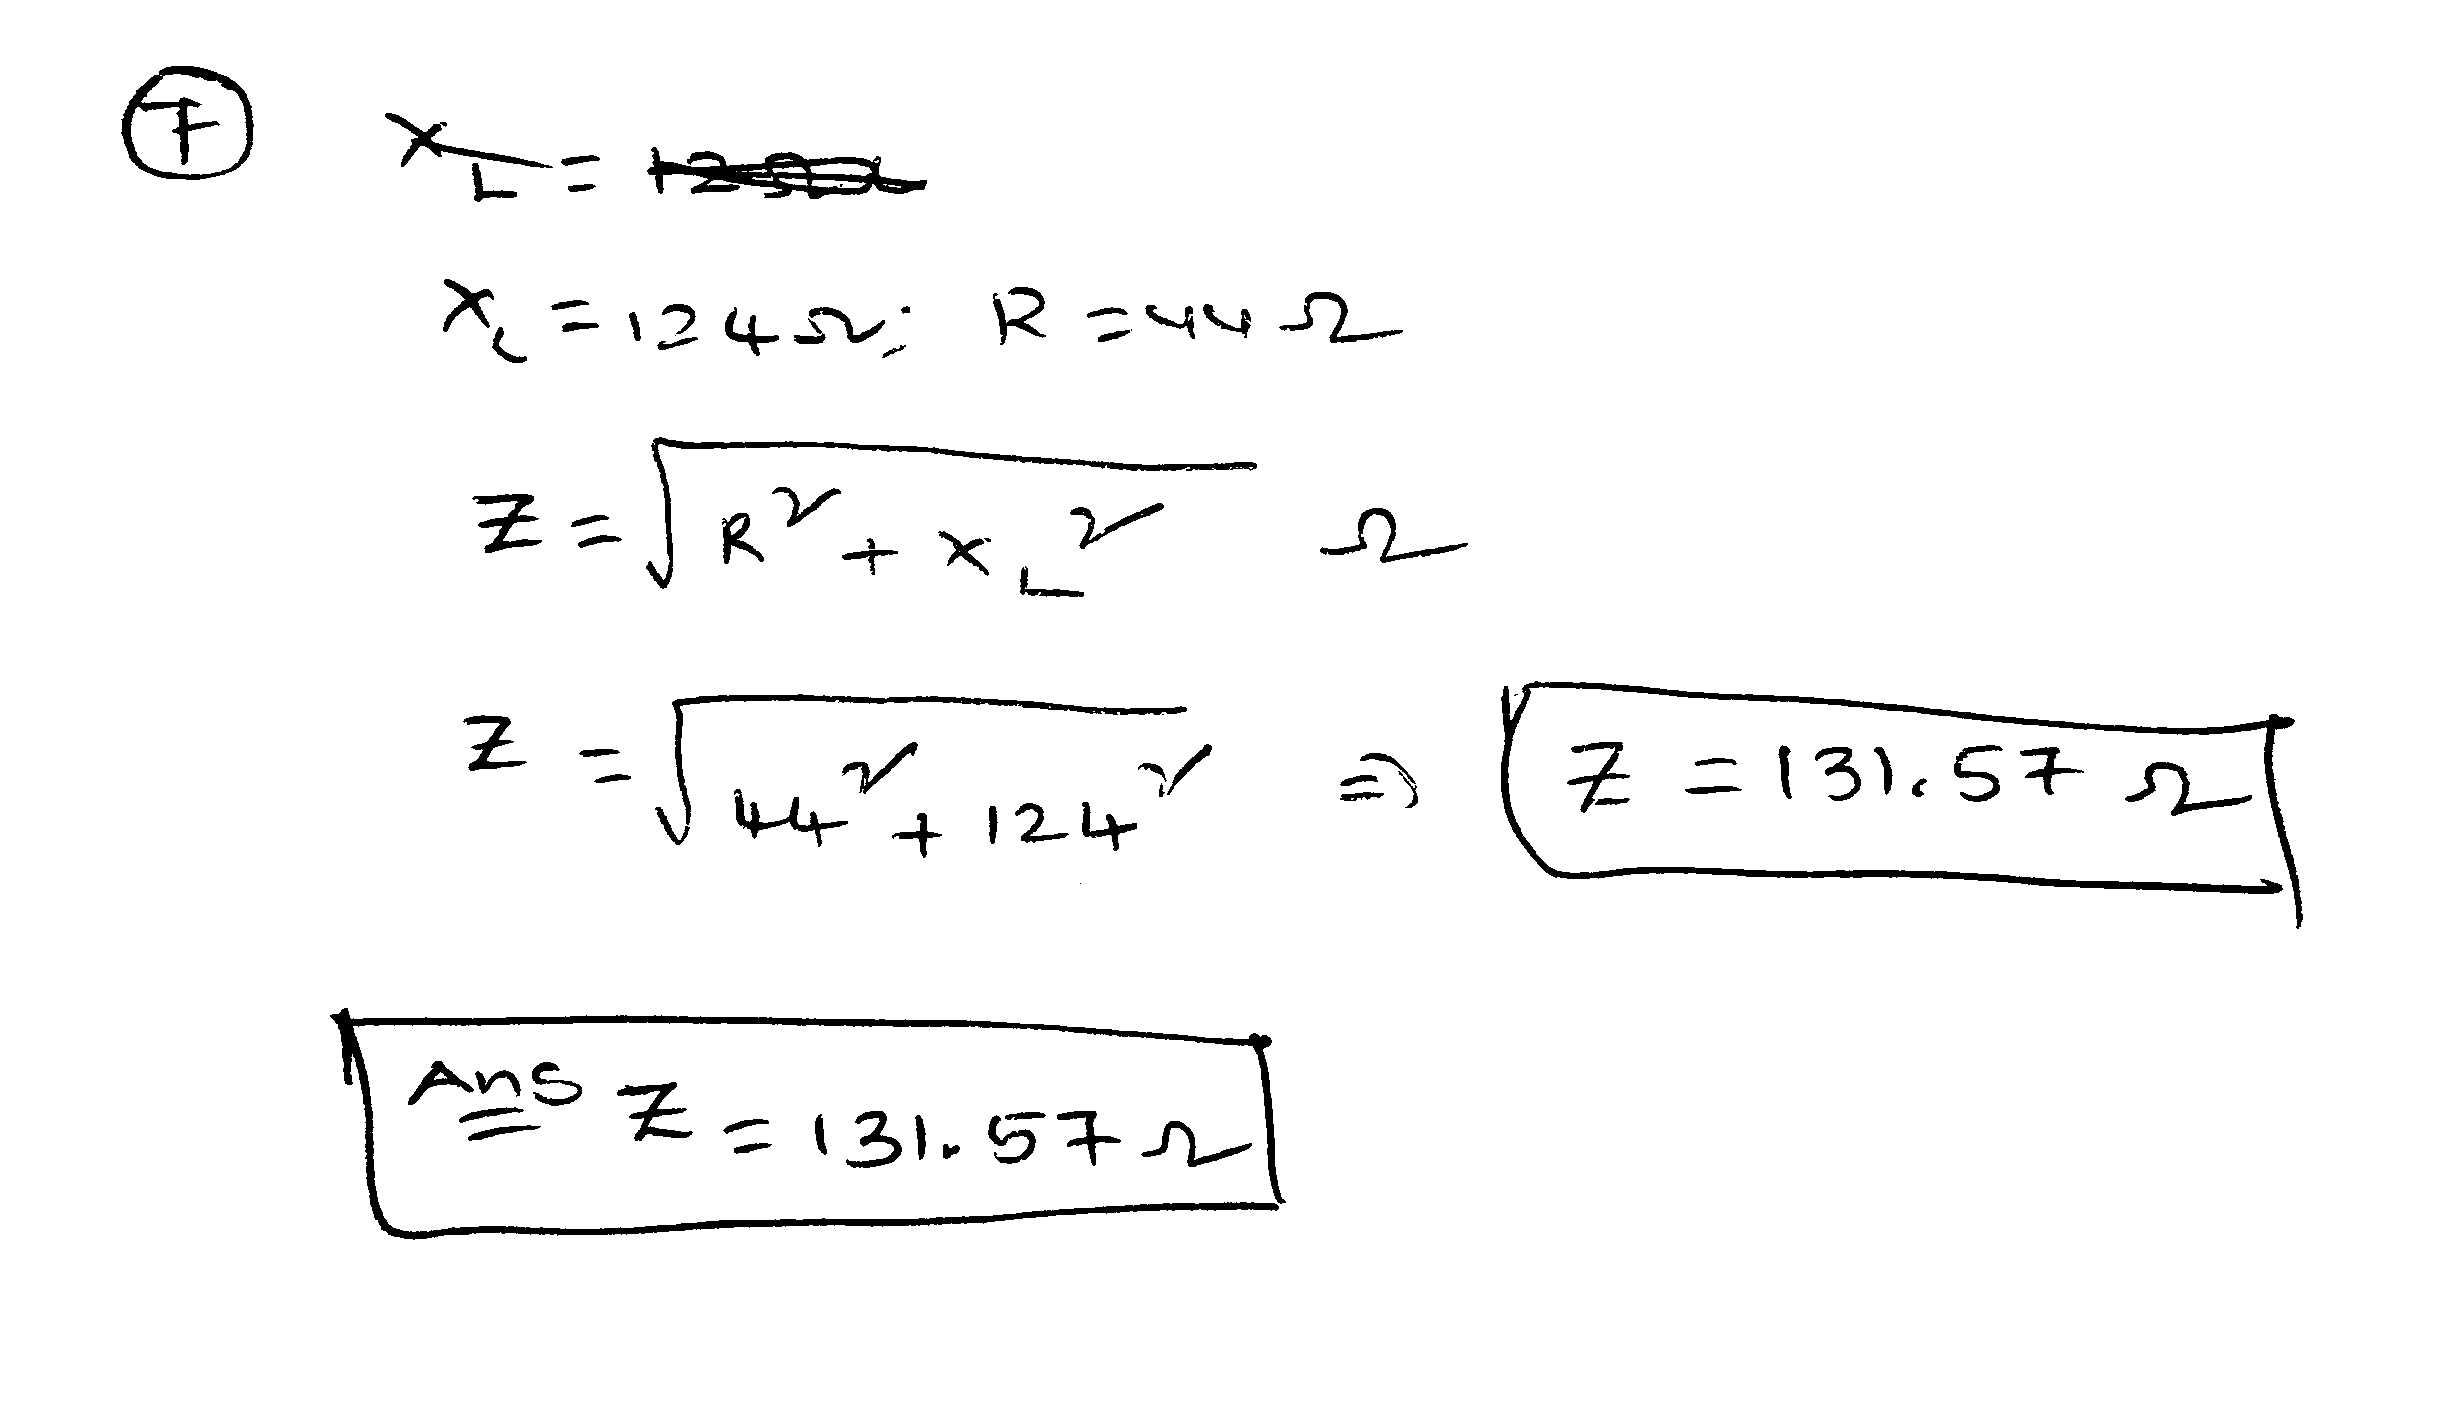 7 X_L =
X_L = 124Ω; R = 44Ω
Z = √(R² + X_L²) Ω
Z = √(44² + 124²) ⇒ Z = 131.57 Ω
Ans Z = 131.57 Ω